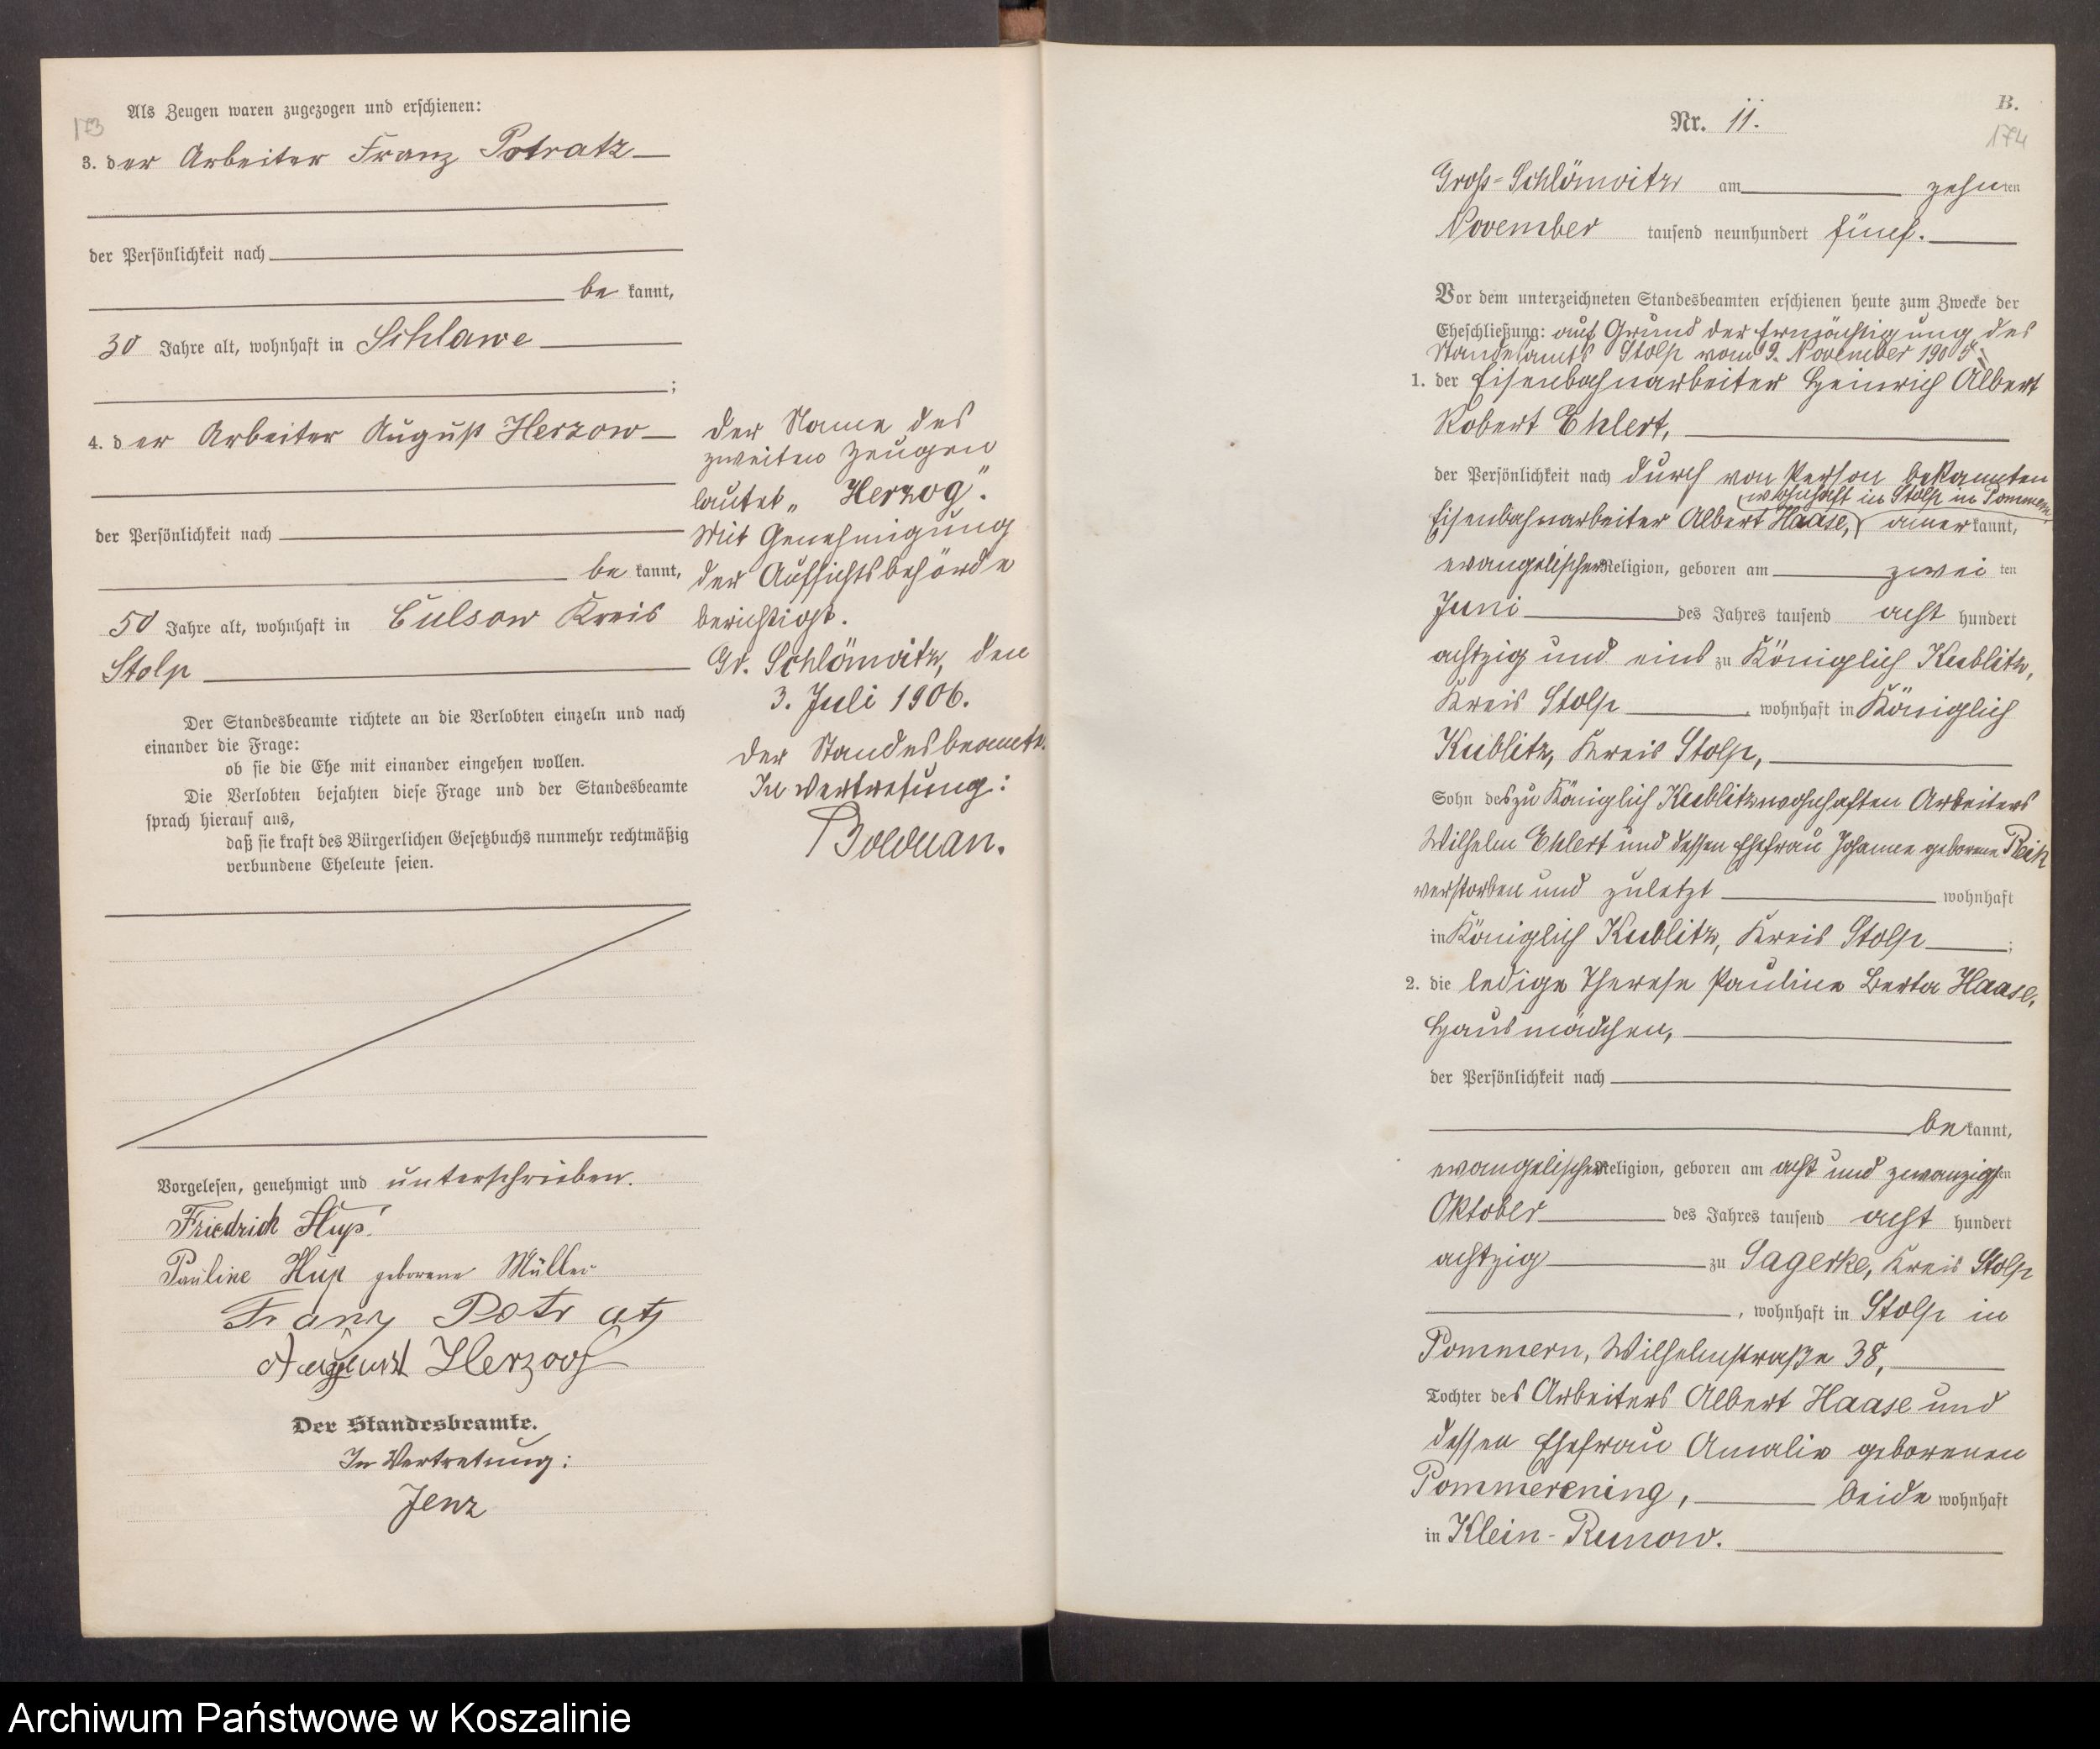 173
Als Zeugen waren zugezogen und erschienen:
3. der Arbeiter Franz Potratz
der Persönlichkeit nach
be kannt,
30 Jahre alt, wohnhaft in Schlawe
;
4. der Arbeiter August Herzow
der Persönlichkeit nach
be kannt,
50 Jahre alt, wohnhaft in Culsow Kreis
Stolp
Der Standesbeamte richtete an die Verlobten einzeln und nach
einander die Frage:
ob sie die Ehe mit einander eingehen wollen.
Die Verlobten bejahten diese Frage und der Standesbeamte
sprach hierauf aus,
daß sie kraft des Bürgerlichen Gesetzbuchs nunmehr rechtmäßig
verbundene Eheleute seien.
Vorgelesen, genehmigt und unterschrieben.
Friedrich
Pauline geborene Müller
Franz Potratz
August Herzog
Der Standesbeamte.
In Vertretung:
Jenz
Der Name des
zweiten Zeugen
lautet „Herzog“.
Mit Genehmigung
der Aufsichtsbehörde
berichtigt.
Gr. Schlönwitz, den
3. Juli 1906.
Der Standesbeamte.
In Vertretung:
Bolduan.
B.
174
Nr. 11.
Groß-Schlönwitz am zehnten
November tausend neunhundert fünf.
Vor dem unterzeichneten Standesbeamten erschienen heute zum Zwecke der
Eheschließung: auf Grund der Ermächtigung des
Standesamts Stolp vom 9. November 1905:
1. der Eisenbahnarbeiter Heinrich Albert
Robert Ehlert,
der Persönlichkeit nach durch von Person bekannten
wohnhaft in Stolp in Pommern,
Eisenbahnarbeiter Albert Haase, anerkannt,
evangelischer Religion, geboren am zwei ten
Juni des Jahres tausend acht hundert
achtzig und eins zu Königlich Kublitz,
Kreis Stolp, wohnhaft in Königlich
Kublitz, Kreis Stolp,
Sohn des zu Königlich Kublitz wohnhaften Arbeiters
Wilhelm Ehlert und dessen Ehefrau Johanne geborene
verstorben und zuletzt wohnhaft
in Königlich Kublitz, Kreis Stolp;
2. die ledige Therese Pauline Berta Haase,
Hausmädchen,
der Persönlichkeit nach
be kannt,
evangelischer Religion, geboren am acht und zwanzigsten
Oktober des Jahres tausend acht hundert
achtzig zu Sagerke, Kreis Stolp
, wohnhaft in Stolp in
Pommern, Wilhelmstraße 38,
Tochter des Arbeiters Albert Haase und
dessen Ehefrau Amalie geborenen
Pommerening, beide wohnhaft
in Klein-Runow.
Archiwum Państwowe w Koszalinie